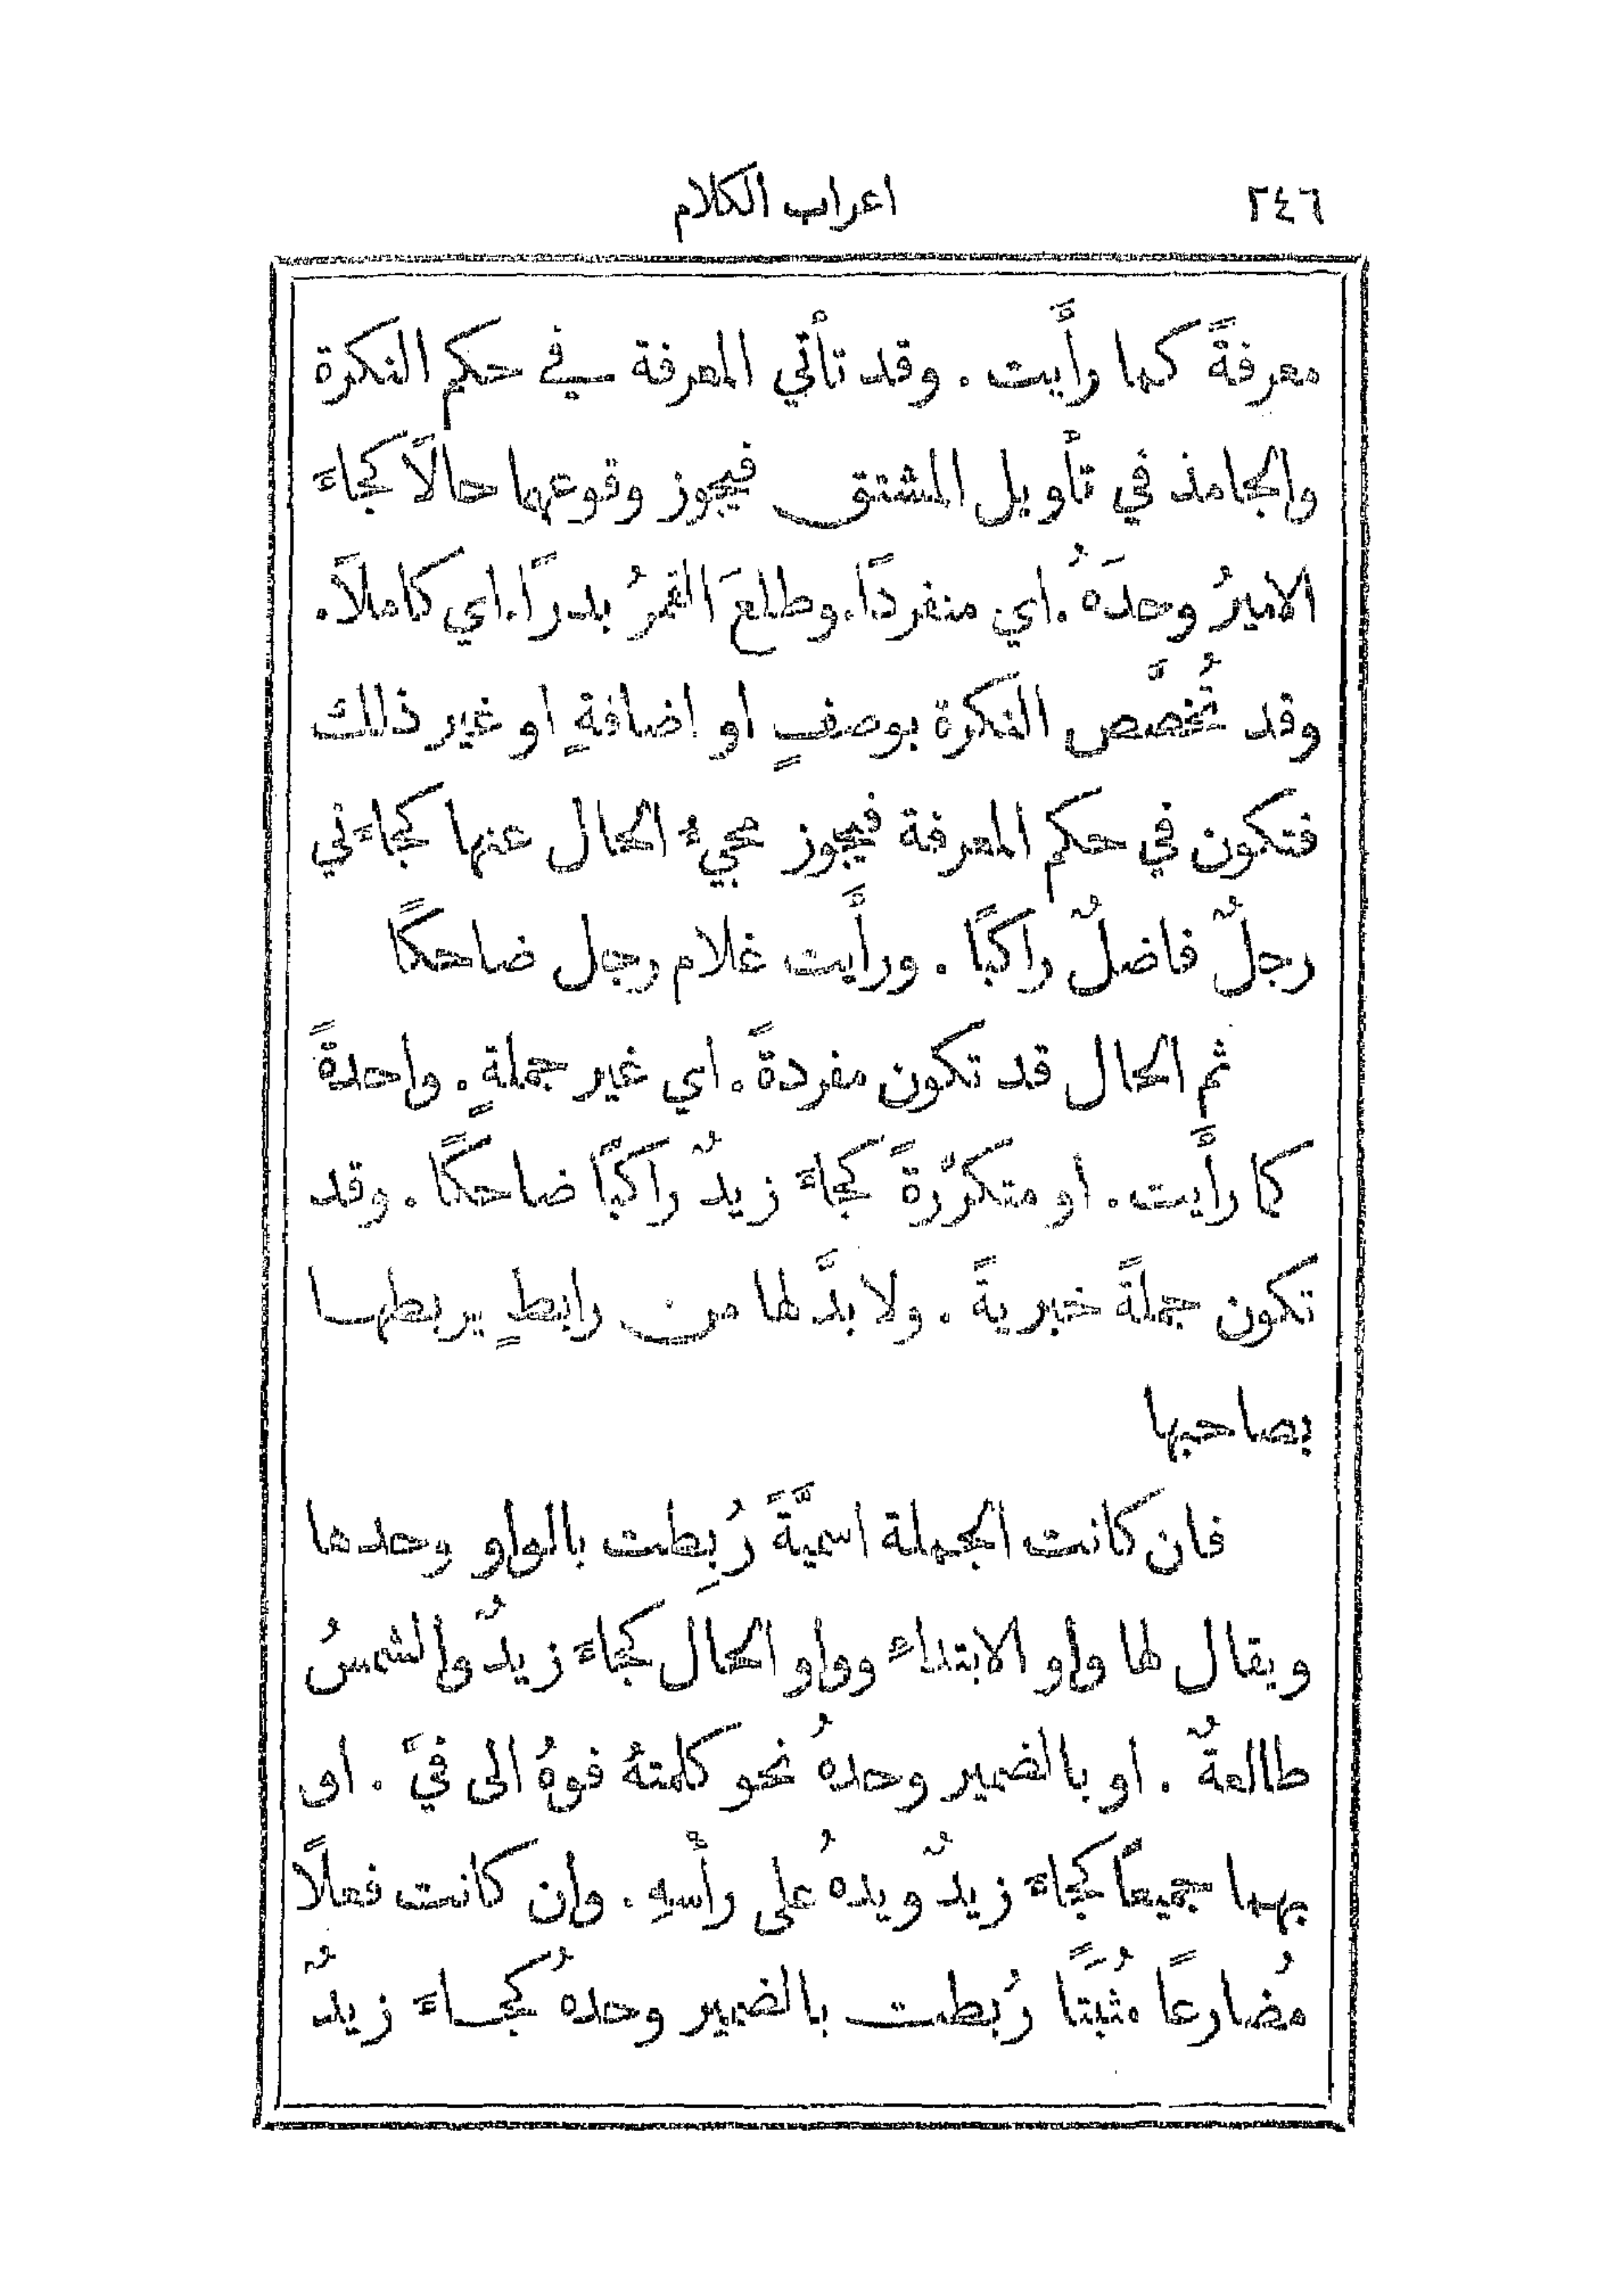 ٢٤٦
اعراب الكلام
معرفةً كما رأَيت . وقد تأْتي المعرفة في حكم النكرة
والجامد في تأْويل المشتق فيجوز وقوعهما حالاً كجاءَ
الاميرُ وحدَهُ . اي منفردًا . وطلعَ القمرُ بدرًا . اي كاملاً .
وقد تُخصَّص النكرة بوصفٍ او اضافةٍ او غير ذلك
فتكون في حكم المعرفة فيجوز مجيءُ الحال عنها كجاءَني
رجلٌ فاضلٌ راكبًا . ورأَيت غلام رجل ضاحكًا
ثم الحال قد تكون مفردةً . اي غير جملةٍ . واحدةً
كما رأَيت . او متكرّرةً كجاءَ زيدٌ راكبًا ضاحكًا . وقد
تكون جملةً خبريةً . ولا بدَّ لها من رابطٍ يربطها
بصاحبها
فان كانت الجملة اسميَّةً رُبِطت بالواو وحدها
ويقال لها واو الابتداء وواو الحال كجاءَ زيدٌ والشمسُ
طالعةٌ . او بالضمير وحدهُ نحو كلمتهُ فوهُ الى فيَّ . او
بهما جميعًا كجاءَ زيدٌ ويدهُ على رأْسهِ . وان كانت فعلاً
مُضارعًا مُثبَتًا رُبطت بالضمير وحدهُ كجاءَ زيدٌ